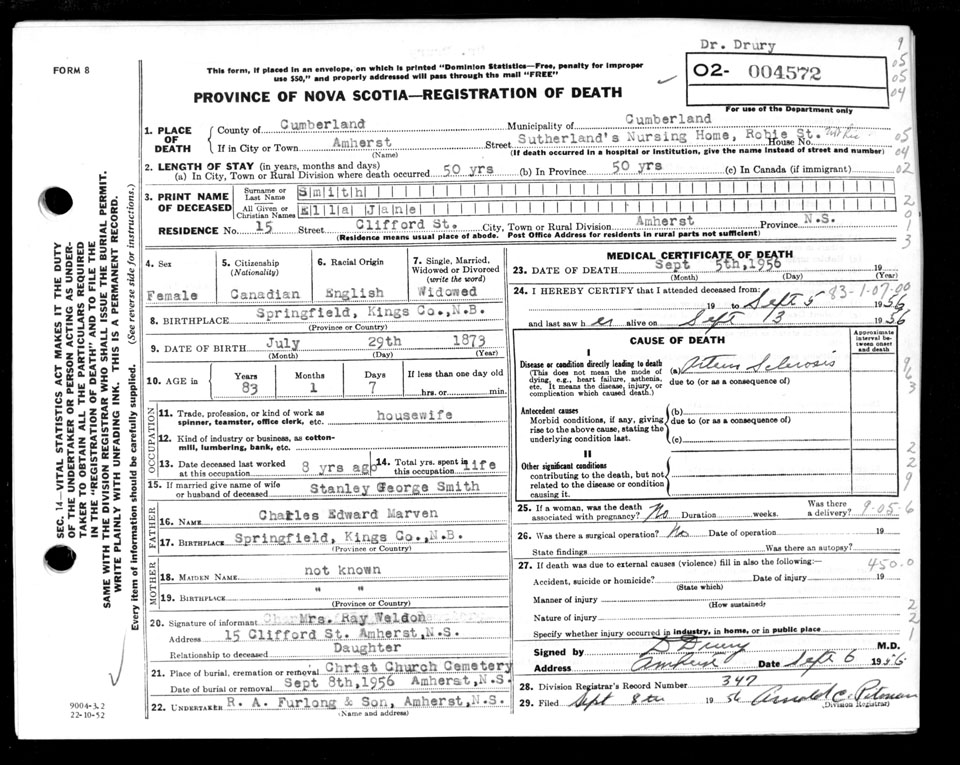 Dr. Drury
FORM 8
This form, if placed in an envelope, on which is printed "Dominion Statistics—Free, penalty for improper
use $50," and properly addressed will pass through the mail "FREE"
02- 004572
PROVINCE OF NOVA SCOTIA—REGISTRATION OF DEATH
For use of the Department only
1. PLACE OF DEATH
County of Cumberland Municipality of Cumberland
If in City or Town Amherst Street Sutherland's Nursing Home, Robie St. House No.
(Name) (If death occurred in a hospital or institution, give the name instead of street and number)
2. LENGTH OF STAY (in years, months and days)
(a) In City, Town or Rural Division where death occurred 50 yrs (b) In Province 50 yrs (c) In Canada (if immigrant)
3. PRINT NAME OF DECEASED
Surname or Last Name Smith
All Given or Christian Names Ella Jane
RESIDENCE No. 15 Street Clifford St. City, Town or Rural Division Amherst Province N.S.
(Residence means usual place of abode. Post Office Address for residents in rural parts not sufficient)
4. Sex
Female
5. Citizenship
(Nationality)
Canadian
6. Racial Origin
English
7. Single, Married,
Widowed or Divorced
(write the word)
Widowed
8. BIRTHPLACE Springfield, Kings Co.,N.B.
(Province or Country)
9. DATE OF BIRTH July 29th 1873
(Month) (Day) (Year)
10. AGE in
Years Months Days If less than one day old
83 1 7 hrs. or min.
OCCUPATION
11. Trade, profession, or kind of work as
spinner, teamster, office clerk, etc. housewife
12. Kind of industry or business, as cotton-
mill, lumbering, bank, etc.
13. Date deceased last worked
at this occupation 8 yrs ago
14. Total yrs. spent in
this occupation life
15. If married give name of wife
or husband of deceased Stanley George Smith
FATHER
16. NAME Charles Edward Marven
17. BIRTHPLACE Springfield, Kings Co.,N.B.
(Province or Country)
MOTHER
18. MAIDEN NAME not known
19. BIRTHPLACE " "
(Province or Country)
20. Signature of informant Mrs. Ray Weldon
Address 15 Clifford St. Amherst,N.S.
Relationship to deceased Daughter
21. Place of burial, cremation or removal Christ Church Cemetery
Date of burial or removal Sept 8th,1956 Amherst,N.S.
22. UNDERTAKER R. A. Furlong & Son, Amherst,N.S.
(Name and address)
MEDICAL CERTIFICATE OF DEATH
23. DATE OF DEATH Sept 5th,1956 19
(Month) (Day) (Year)
83-1-07-00
24. I HEREBY CERTIFY that I attended deceased from:
19 to Sept 5 1956
and last saw her alive on Sept 3 1956
CAUSE OF DEATH
Approximate
interval be-
tween onset
and death
I
Disease or condition directly leading to death
(This does not mean the mode of
dying, e.g., heart failure, asthenia,
etc. It means the disease, injury, or
complication which caused death.)
(a) Arterio Sclerosis
due to (or as a consequence of)
Antecedent causes
Morbid conditions, if any, giving
rise to the above cause, stating the
underlying condition last.
(b)
due to (or as a consequence of)
(c)
II
Other significant conditions
contributing to the death, but not
related to the disease or condition
causing it.
25. If a woman, was the death
associated with pregnancy? No Duration weeks. Was there
a delivery?
9-05-6
26. Was there a surgical operation? No Date of operation 19
State findings Was there an autopsy?
27. If death was due to external causes (violence) fill in also the following:—
450.0
Accident, suicide or homicide? Date of injury 19
(State which)
Manner of injury
(How sustained)
Nature of injury
Specify whether injury occurred in industry, in home, or in public place
Signed by D Drury M.D.
Address Amherst Date Sept 6 1956
28. Division Registrar's Record Number 347
29. Filed Sept 8th 1956
(Division Registrar)
SEC. 14—VITAL STATISTICS ACT MAKES IT THE DUTY
OF THE UNDERTAKER OR PERSON ACTING AS UNDER-
TAKER TO OBTAIN ALL THE PARTICULARS REQUIRED
IN THE "REGISTRATION OF DEATH" AND TO FILE THE
SAME WITH THE DIVISION REGISTRAR WHO SHALL ISSUE THE BURIAL PERMIT.
WRITE PLAINLY WITH UNFADING INK. THIS IS A PERMANENT RECORD.
Every item of information should be carefully supplied. (See reverse side for instructions.)
9004-3.2
22-10-52
9
05
05
04
05
04
02
2
0
1
3
9
6
3
2
2
9
2
2
1